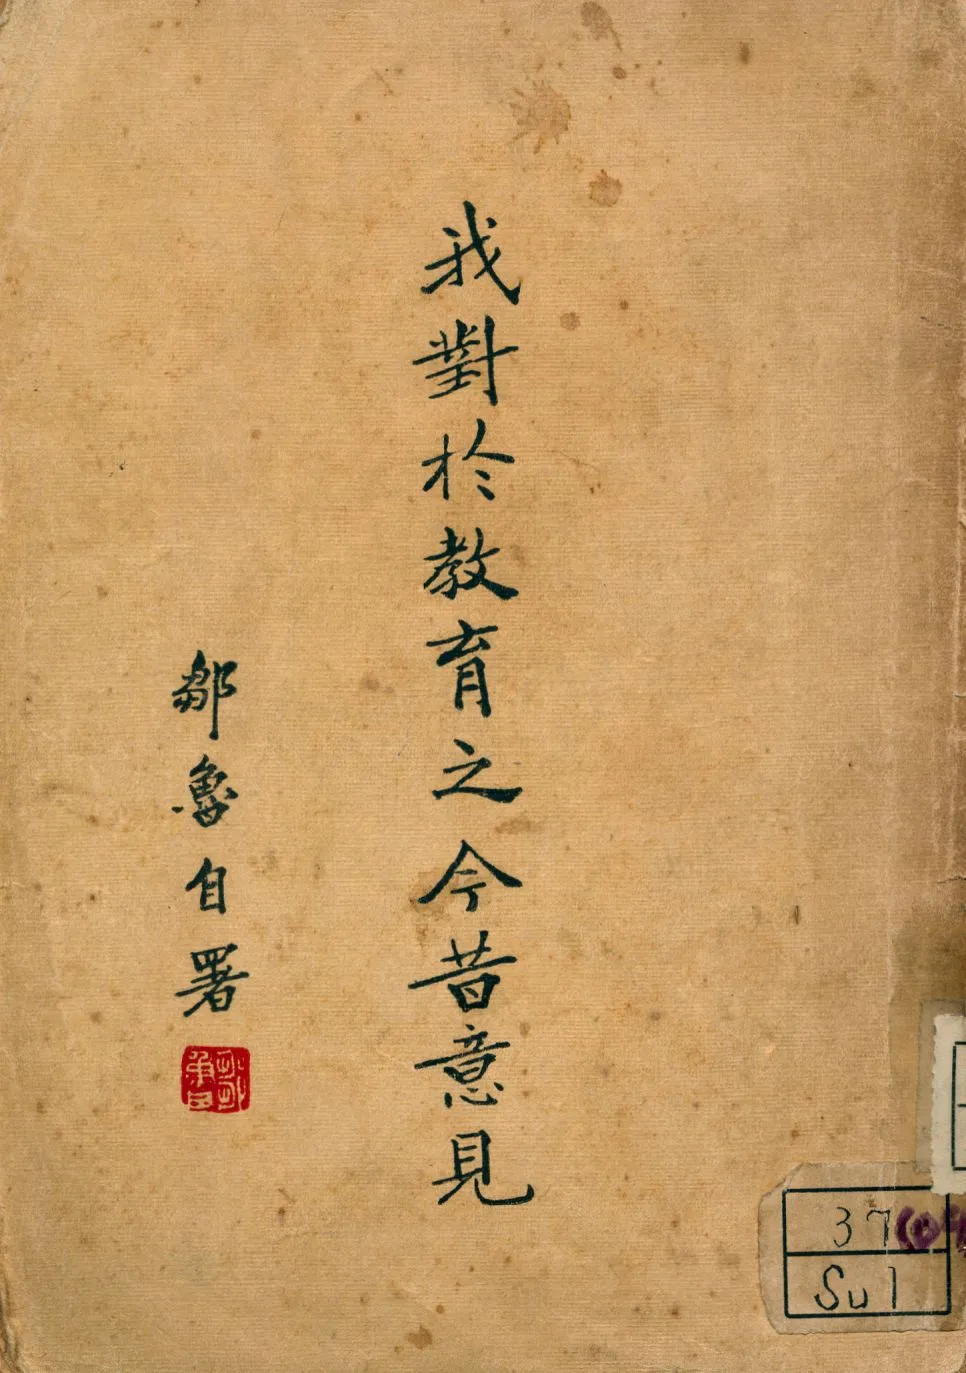 我對於教育之今昔意見
鄒魯自署
37
Su1